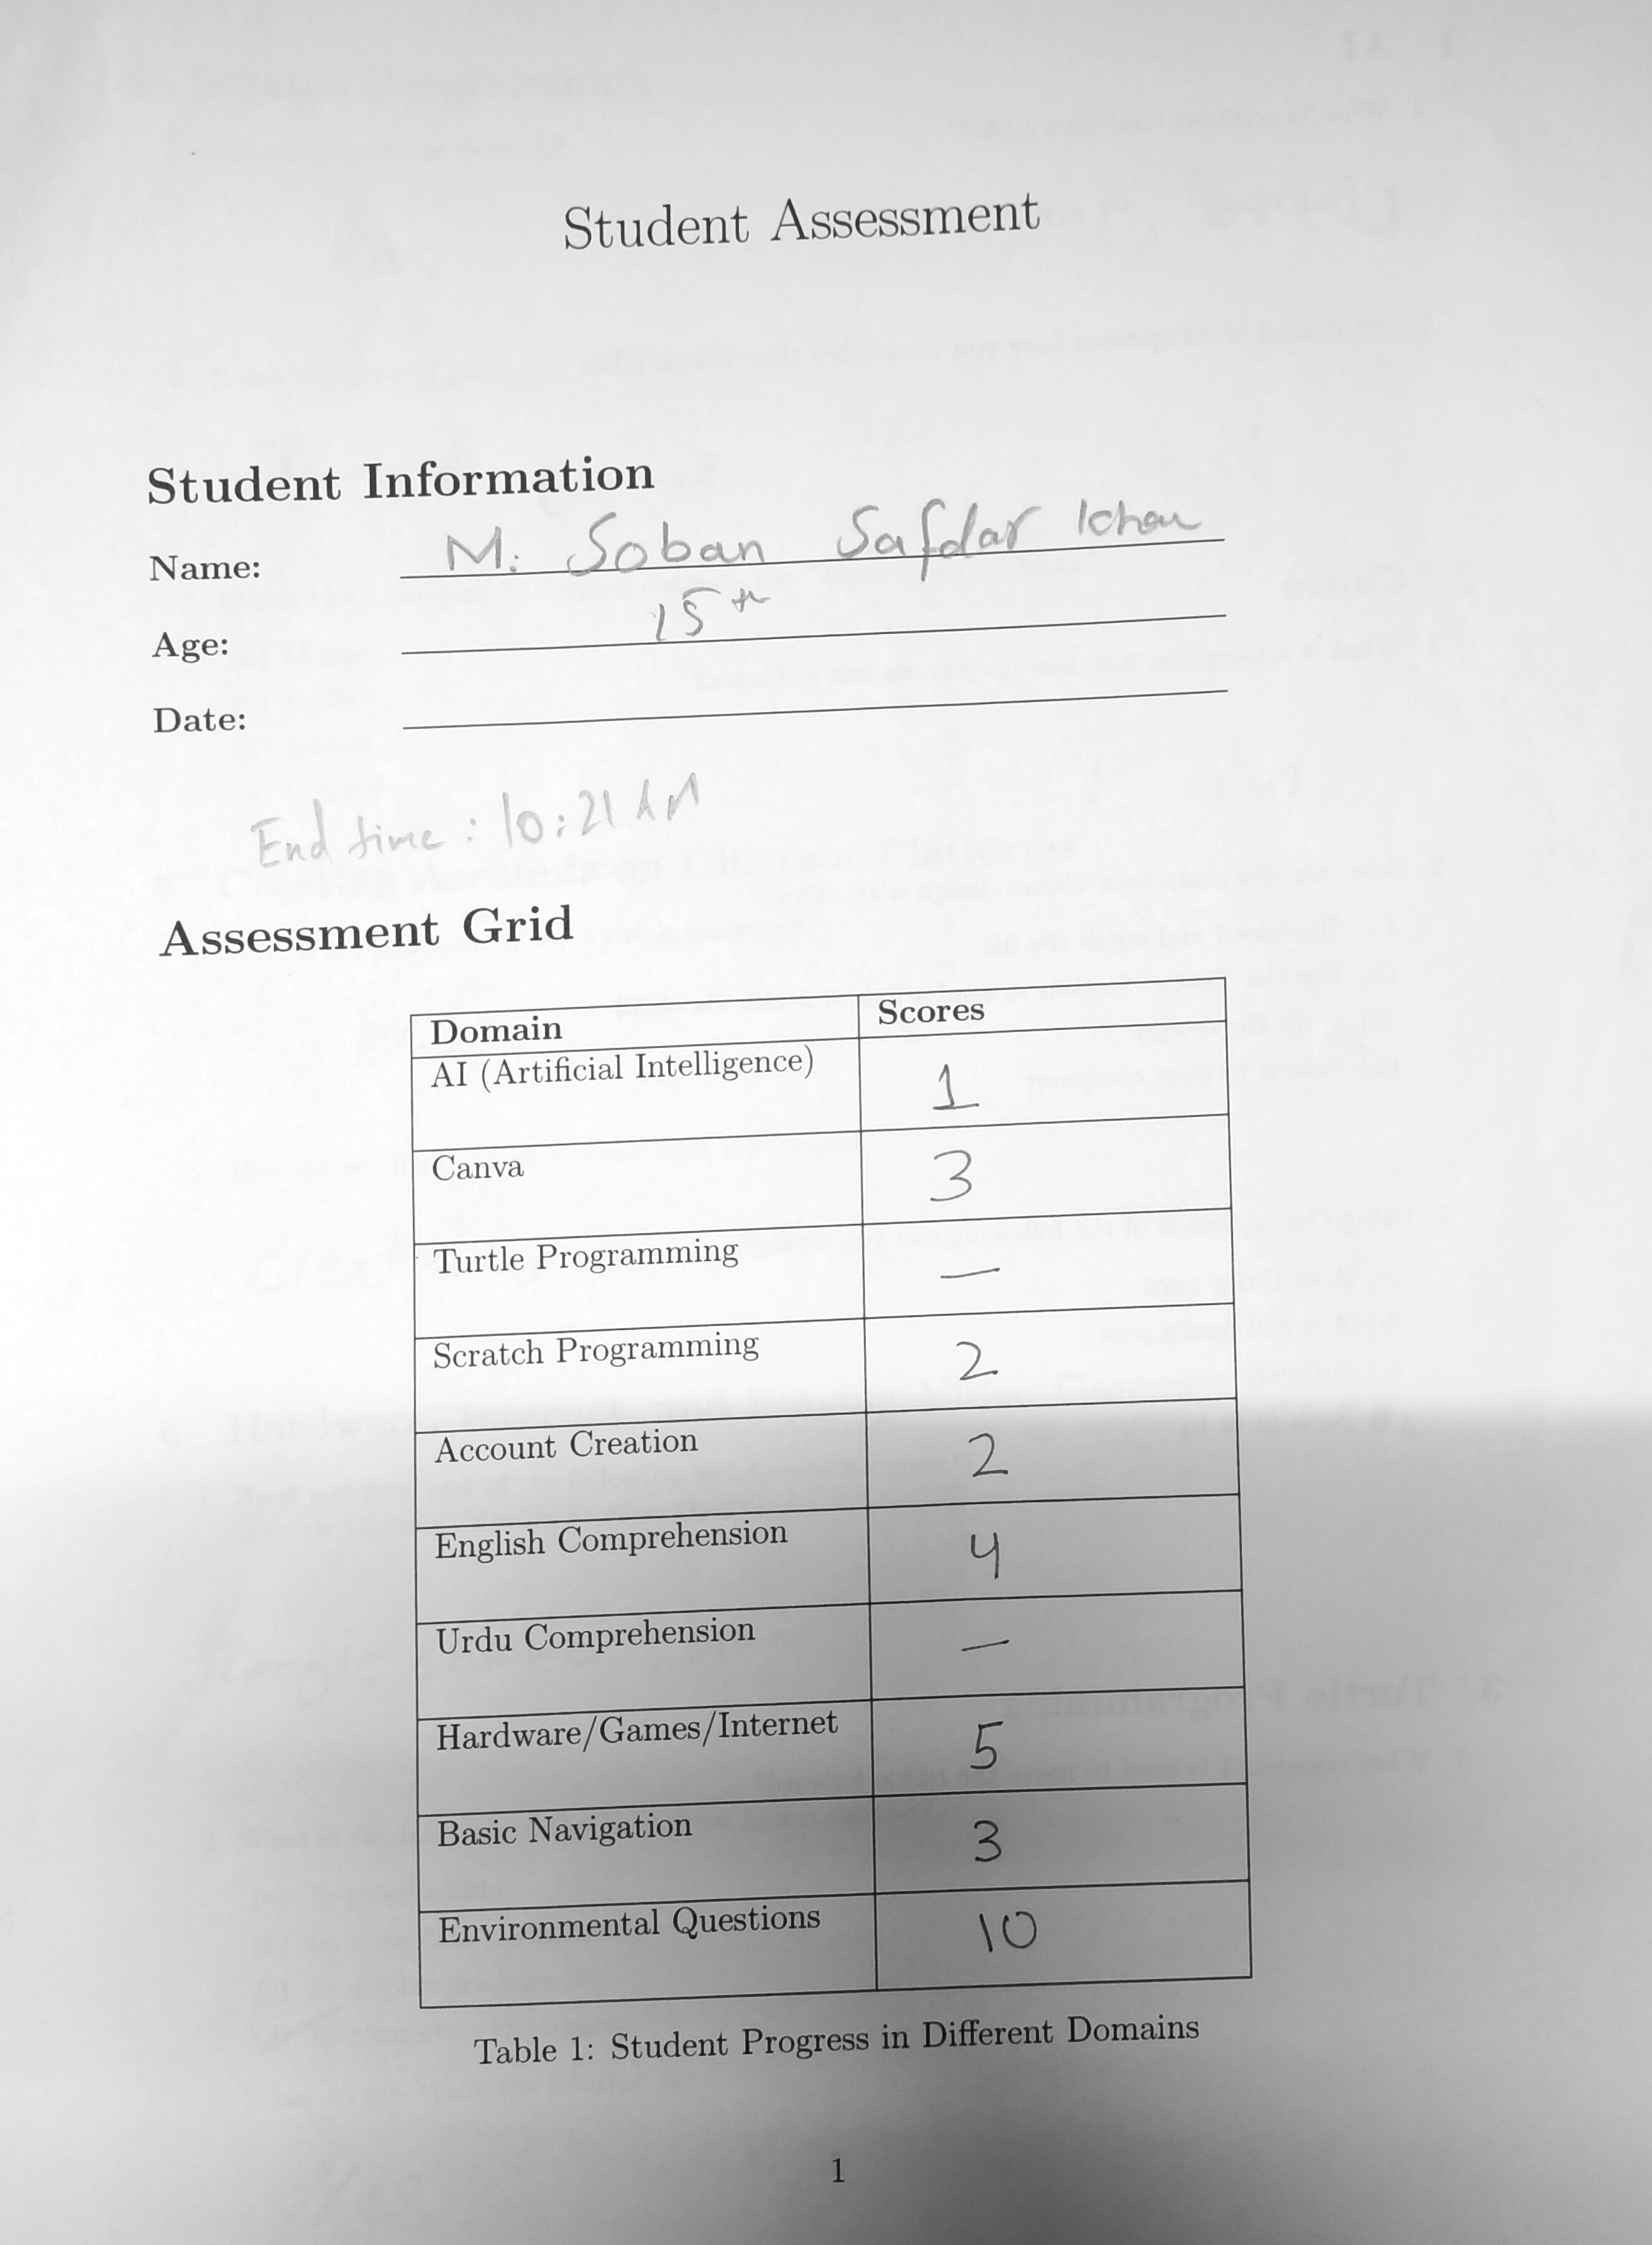 Student Assessment
Student Information
Name: M. Soban Safdar Khan
Age: 15th
Date:
End time : 10:21 AM
Assessment Grid
Domain Scores
AI (Artificial Intelligence) 1
Canva 3
Turtle Programming —
Scratch Programming 2
Account Creation 2
English Comprehension 4
Urdu Comprehension —
Hardware/Games/Internet 5
Basic Navigation 3
Environmental Questions 10
Table 1: Student Progress in Different Domains
1